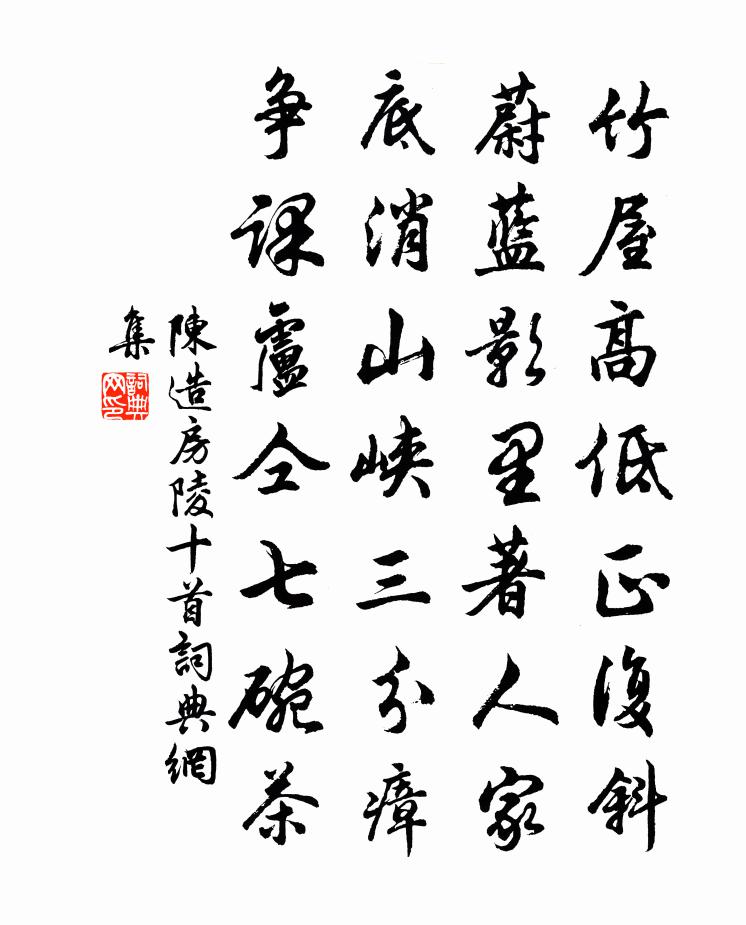 竹屋高低正復斜
蔚藍影里著人家
底消山峽三分瘴
争課盧仝七碗茶
陳造房陵十首詞典網
集
詞典
网印